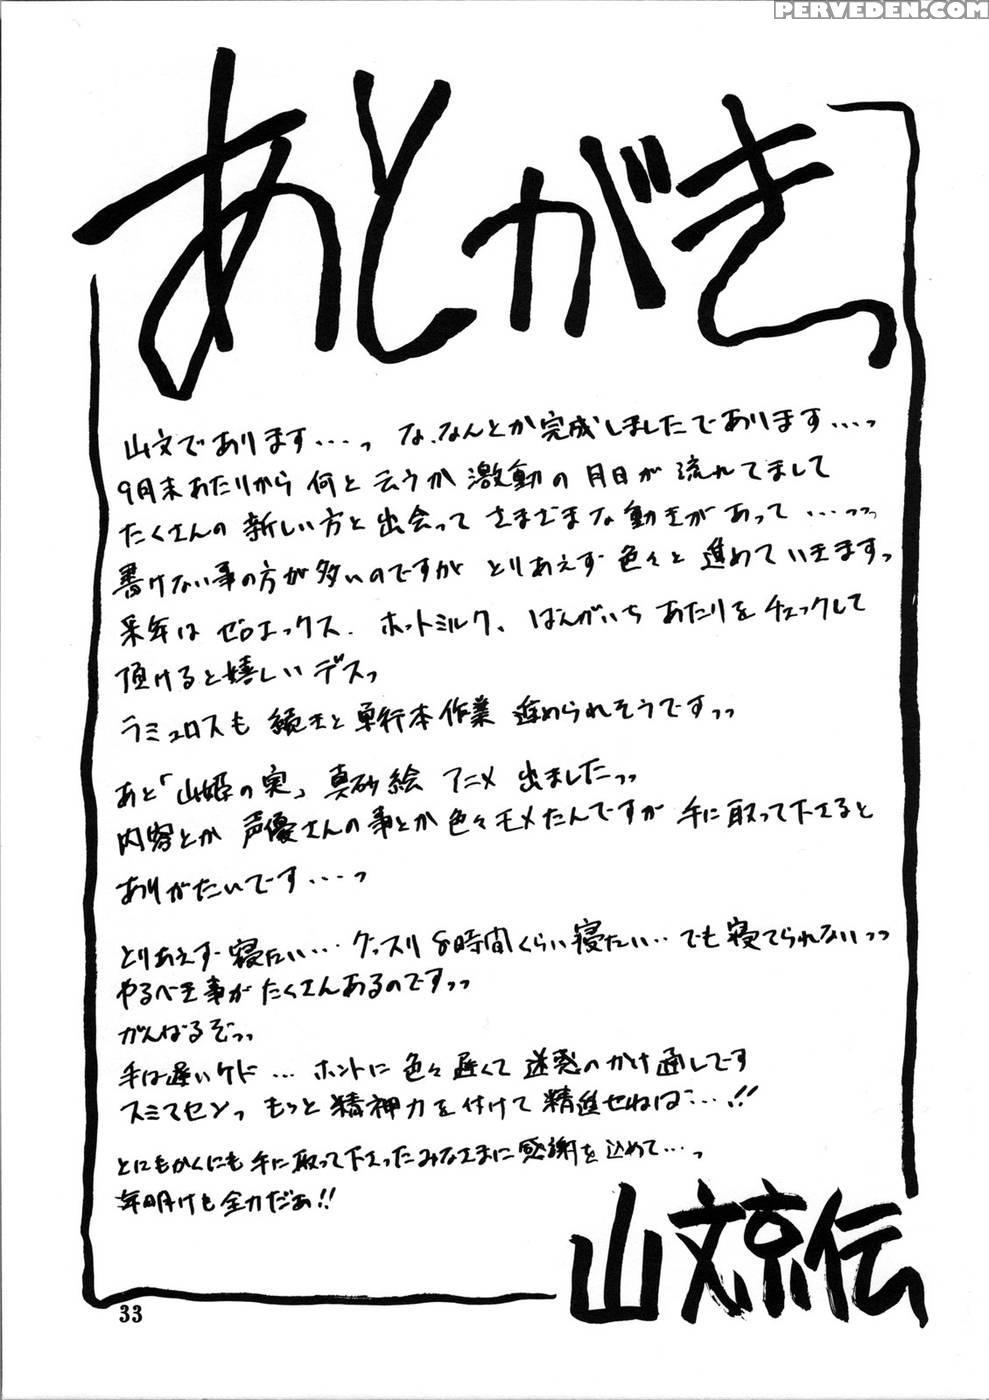 PERVEDEN.COM
あとがきっ
山文であります…っ な、なんとか完成しましたであります…っ
9月末あたりから何と云うか激動の月日が流れてまして
たくさんの新しい方と出会ってさまざまな動きがあって…っっ
書けない事の方が多いのですがとりあえず色々と進めていきますっ
来年はゼロエックス、ホットミルク、ばんがいちあたりをチェックして
頂けると嬉しいデスっ
ラミュロスも続きと単行本作業進められそうですっっ
あと「山姫の実」真砂絵アニメ出ましたっっ
内容とか声優さんの事とか色々モメたんですが手に取って下さると
ありがたいです…っ
とりあえず寝たい…グッスリ8時間くらい寝たい…でも寝てられないっっ
やるべき事がたくさんあるのですっっ
がんばるぞっっ
手は遅いケド…ホントに色々遅くて迷惑のかけ通しです
スミマセンっ もっと精神力を付けて精進せねば…!!
とにもかくにも手に取って下さったみなさまに感謝を込めて…っ
年明けも全力だぁ!!
山文京伝
33